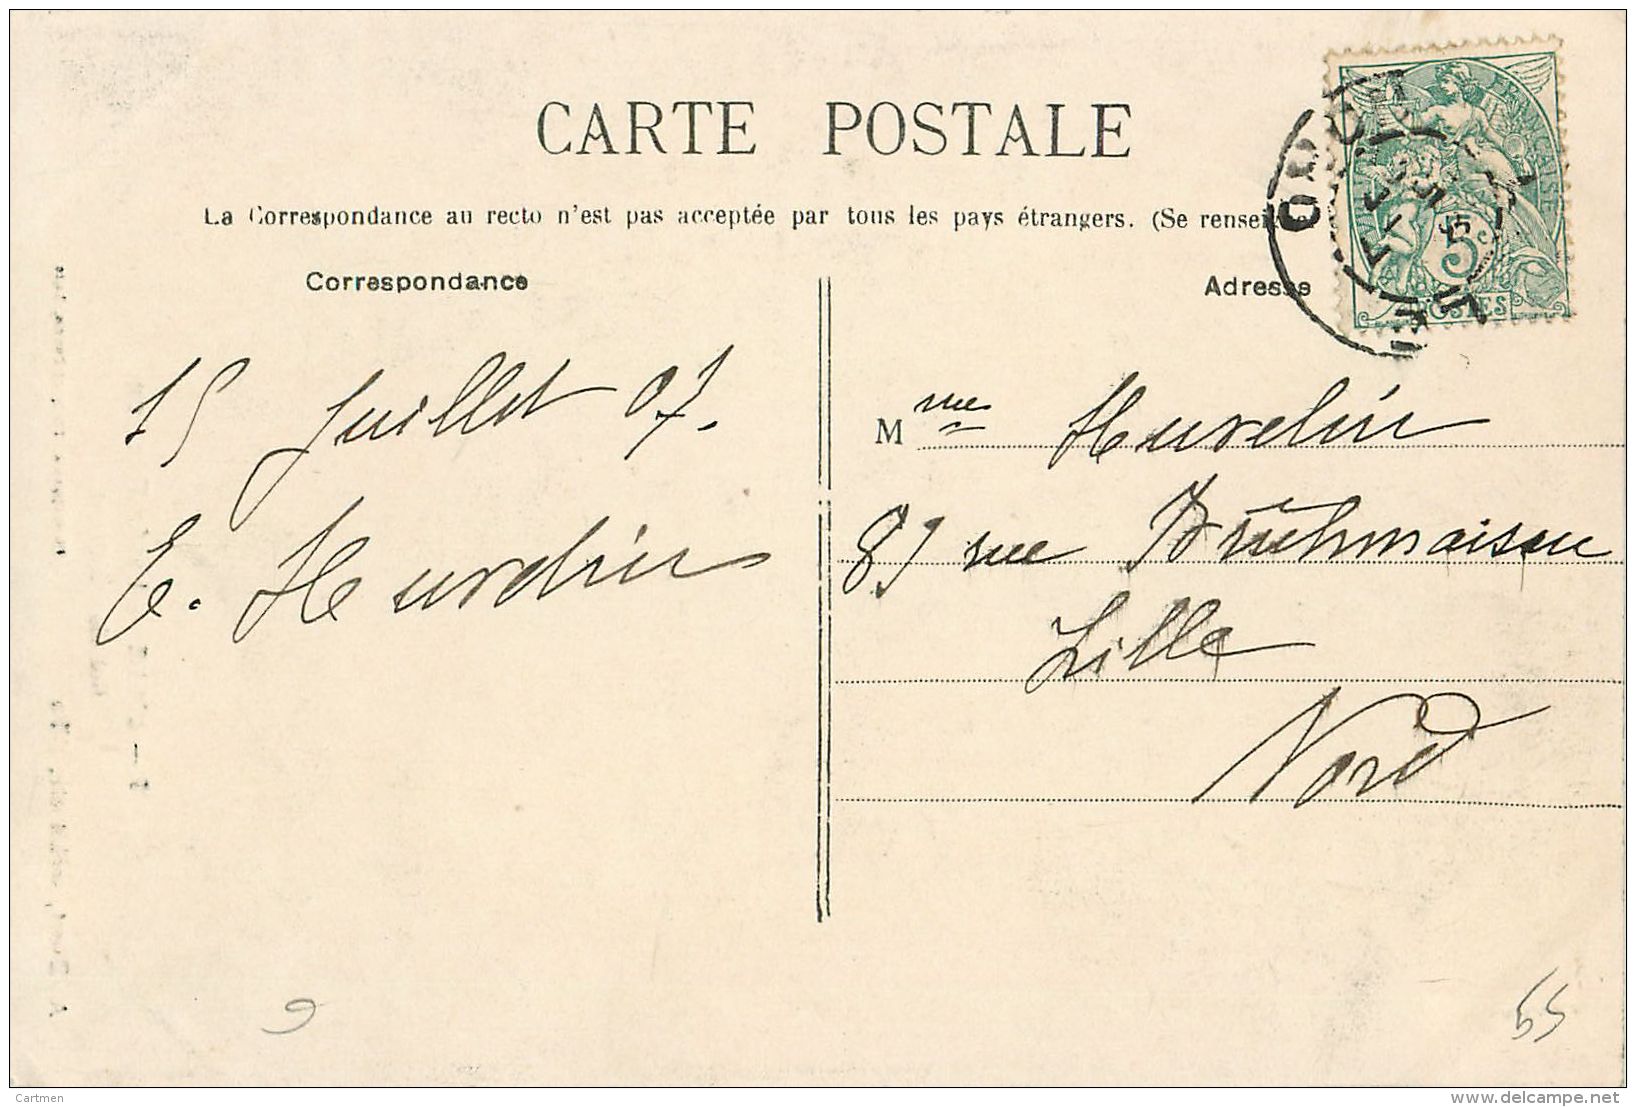 CARTE POSTALE
La Correspondance au recto n'est pas acceptée par tous les pays étrangers. (Se rensei
Correspondance
Adresse
15 Juillet 07.
E. Hurdlin
M me Hurdlin
rue
Lille
Nord
5c
POSTES
9
55
Cartmen
www.delcampe.net